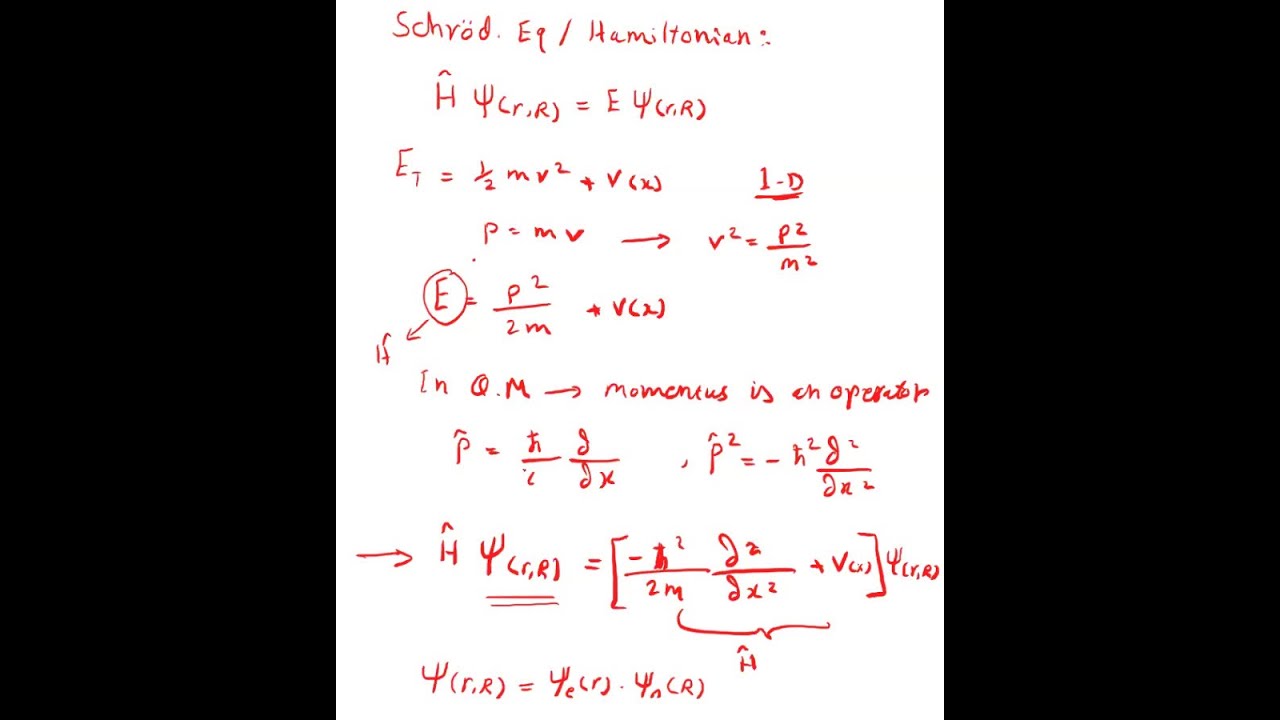 Schröd. Eq / Hamiltonian:
Ĥ Ψ(r,R) = E Ψ(r,R)
E_T = ½ m v² + V(x) 1-D
P = m v → v² = P²/m²
E = P²/2m + V(x)
Ĥ
In Q.M → momentus is an operator
P̂ = ħ/i ∂/∂x , P̂² = -ħ² ∂²/∂x²
→ Ĥ Ψ(r,R) = [-ħ²/2m ∂²/∂x² + V(x)] Ψ(r,R)
Ĥ
Ψ(r,R) = Ψe(r) · Ψn(R)